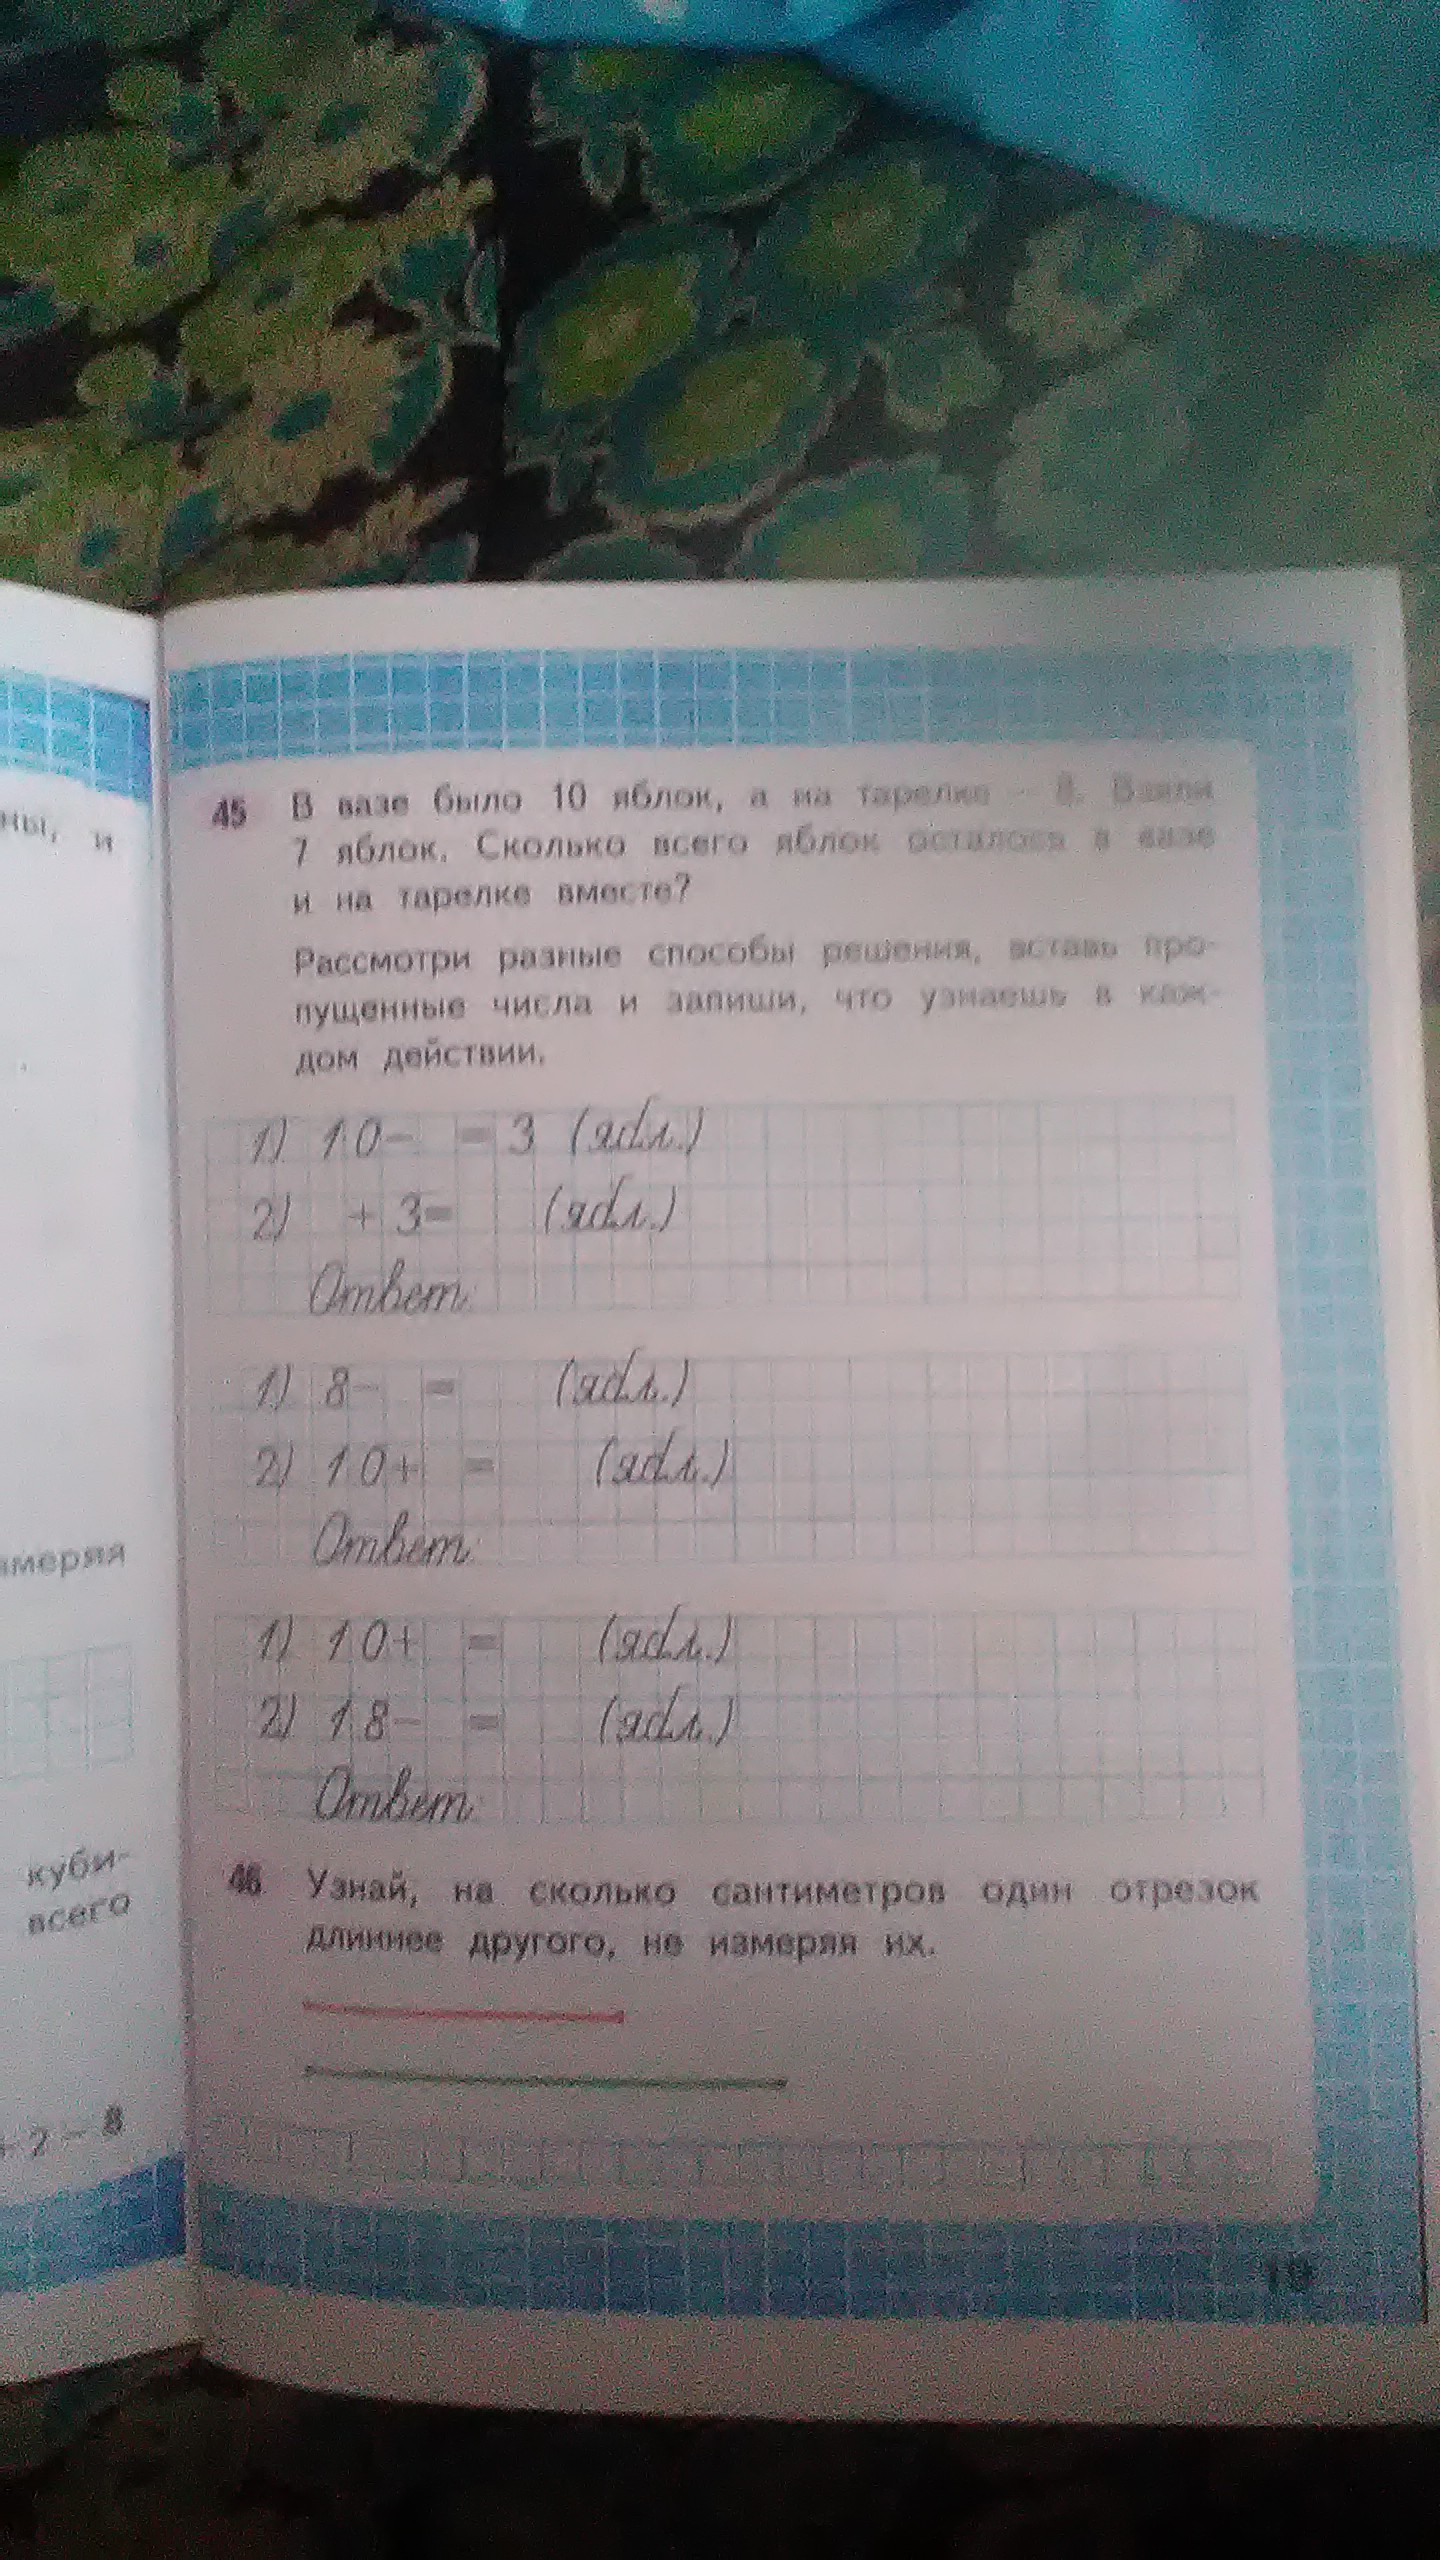 ны, и
амеряя
куби-
всего
+ 7 - 8
45 В вазе было 10 яблок, а на тарелке – 8. Взяли
7 яблок. Сколько всего яблок осталось в вазе
и на тарелке вместе?
Рассмотри разные способы решения, вставь про-
пущенные числа и запиши, что узнаешь в каж-
дом действии.
1) 10- = 3 (ябл.)
2) + 3= (ябл.)
Ответ:
1) 8- = (ябл.)
2) 10+ = (ябл.)
Ответ:
1) 10+ = (ябл.)
2) 18- = (ябл.)
Ответ:
46 Узнай, на сколько сантиметров один отрезок
длиннее другого, не измеряя их.
19